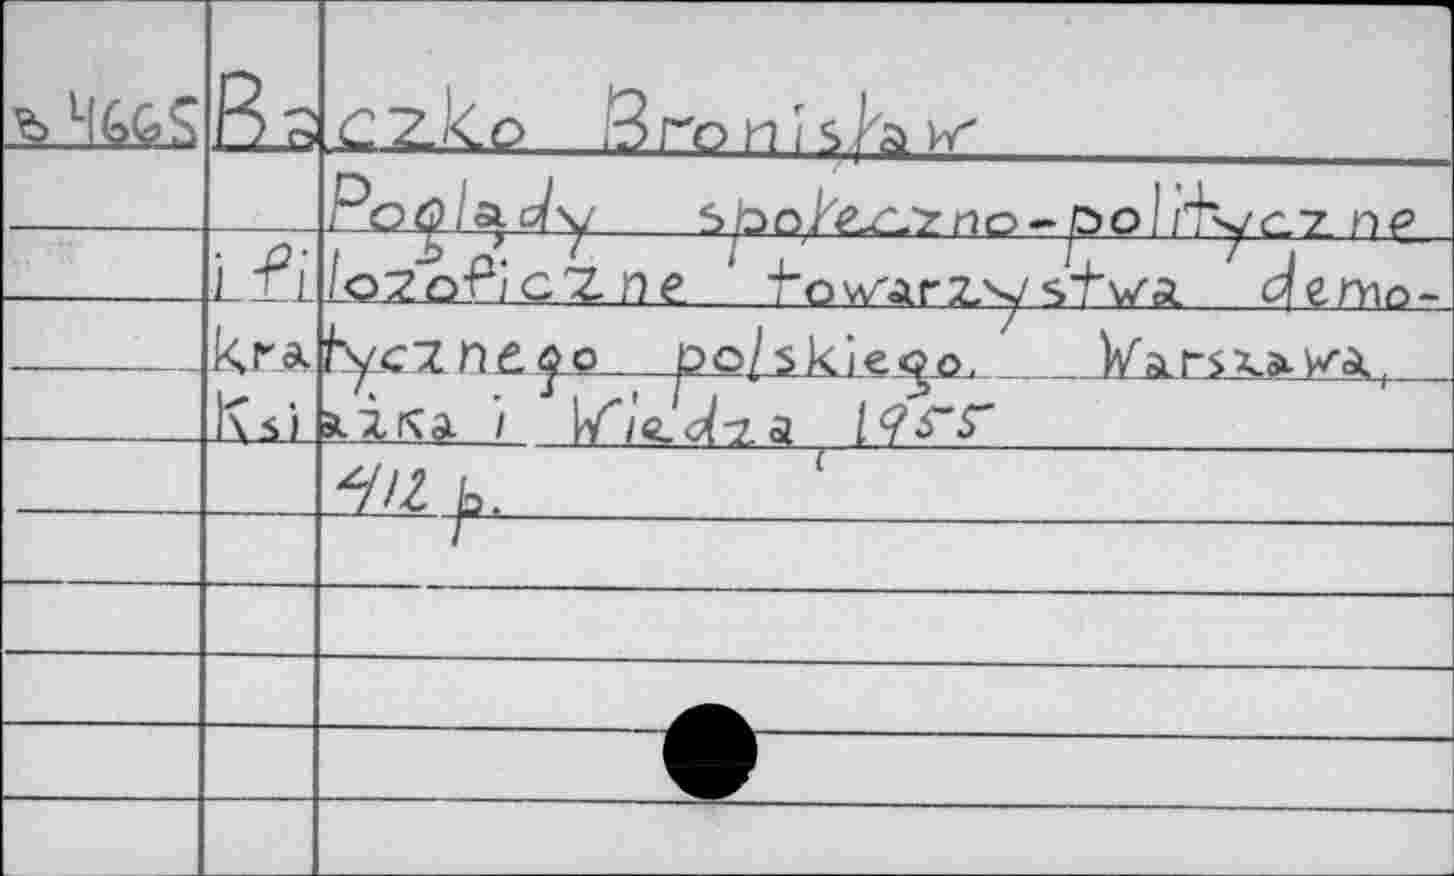 ъ 4665 Baczko Bronisław
Poglądy społeczno-polityczne
i filozoficzne towarzystwa demo-
kratycznego polskiego. Warszawa,
Książka i Wiedza, 1955
412 p.